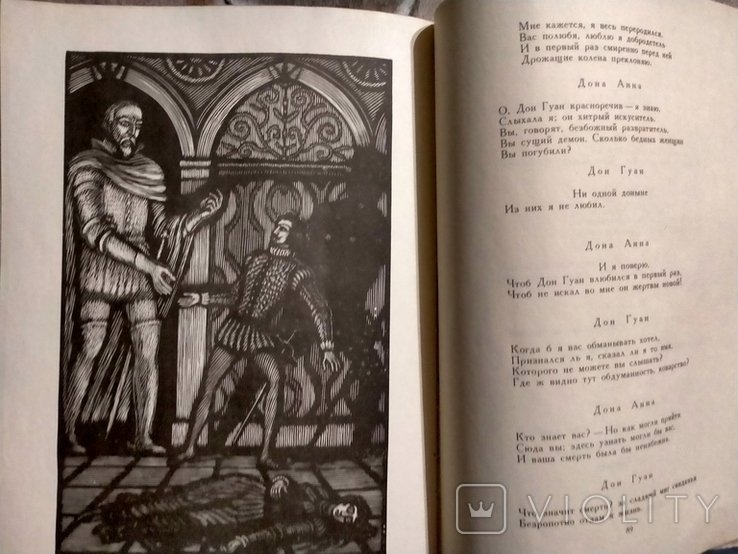 Мне кажется, я весь переродился.
Вас полюбя, люблю я добродетель
И в первый раз смиренно перед ней
Дрожащие колена преклоняю.
Дона Анна
О, Дон Гуан красноречив — я знаю,
Слыхала я; он хитрый искуситель.
Вы, говорят, безбожный развратитель,
Вы сущий демон. Сколько бедных женщин
Вы погубили?
Дон Гуан
Ни одной доныне
Из них я не любил.
Дона Анна
И я поверю,
Чтоб Дон Гуан влюбился в первый раз,
Чтоб не искал во мне он жертвы новой!
Дон Гуан
Когда б я вас обманывать хотел,
Признался ль я, сказал ли я то имя,
Которого не можете вы слышать?
Где ж видно тут обдуманность, коварство?
Дона Анна
Кто знает вас? — Но как могли прийти
Сюда вы; здесь узнать могли бы вас,
И ваша смерть была бы неизбежна.
Дон Гуан
Что значит смерть? за сладкий миг свиданья
Безропотно отдам я жизнь.
89
VIOLITY